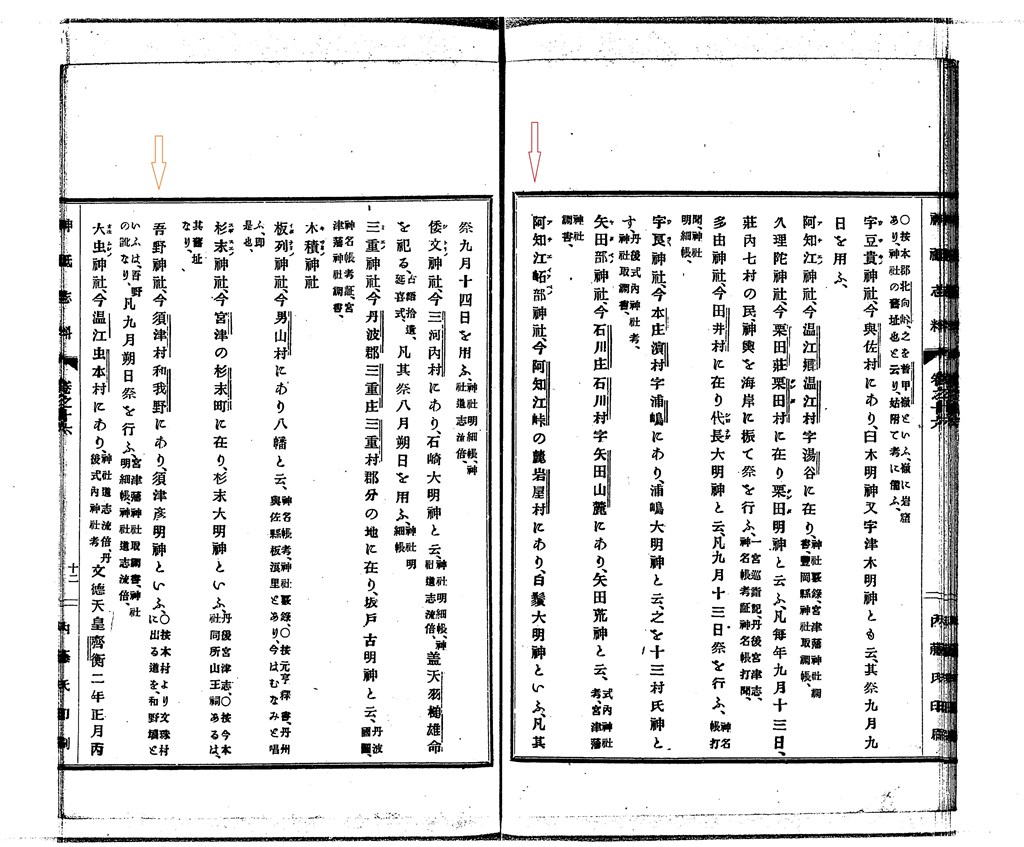 〇按本郡北向峠、之を首甲嶺といふ、嶺に岩窟
あり、神社の舊址也と云り、姑附て考に備ふ、
宇豆貴神社、今與佐村にあり、臼木明神又宇津木明神とも云、其祭九月九
日を用ふ、
阿知江神社、今温江郷温江村字湯谷に在り、神社覈錄、宮津藩神社調書、豐岡縣神社取調帳、
久理陀神社、今栗田莊栗田村に在り栗田明神と云ふ、凡毎年九月十三日、
莊內七村の民、神輿を海岸に振て祭を行ふ、一宮巡詣記丹後宮津志、神名帳考証神名帳打聞、
多由神社、今田井村に在り代長大明神と云、凡九月十三日祭を行ふ、神名帳打
聞、神社明細帳、
宇良神社、今本庄濱村字浦嶋にあり、浦嶋大明神と云、之を十三村氏神と
す、丹後式內神社考、神社取調書、
矢田部神社、今石川庄石川村字矢田山麓にあり、矢田荒神と云、式內神社考、宮津藩
神社調書、
阿知江峅部神社、今阿知江峠の麓岩屋村にあり、白鬚大明神といふ、凡其
祭九月十四日を用ふ、神社明細帳、神社道志流倍、
倭文神社、今三河內村にあり、石崎大明神と云、神社明細帳、神社道志流倍、蓋天羽槌雄命
を祀る、古語拾遺、延喜式、凡其祭八月朔日を用ふ、神社明細帳
三重神社、今丹波郡三重庄三重村郡分の地に在り、坂戸古明神と云、丹波國圖、
神名帳考証、宮津藩神社調書、
木積神社
板列神社、今男山村にあり八幡と云、神名帳考、神社覈錄、〇按元亨釋書、丹州與佐縣板浪里とあり、今はむなみと唱
ふ、即是也、
杉末神社、今宮津の杉末町に在り、杉末大明神といふ、丹後宮津志、〇按今本社同所山王祠あるは、
其舊址なり、
吾野神社、今須津村和我野にあり、須津彥明神といふ、〇按本村より文珠村に出る道を、和野墳と
いふは、吾野の訛なり、凡九月朔日祭を行ふ、宮津藩神社取調書、神社明細帳、神社道志流倍、
大虫神社、今温江虫本村にあり、神社道志流倍、丹後式內神社考、文德天皇齊衡二年正月丙
神祇志料
卷之十六
十二
內藤氏印刷